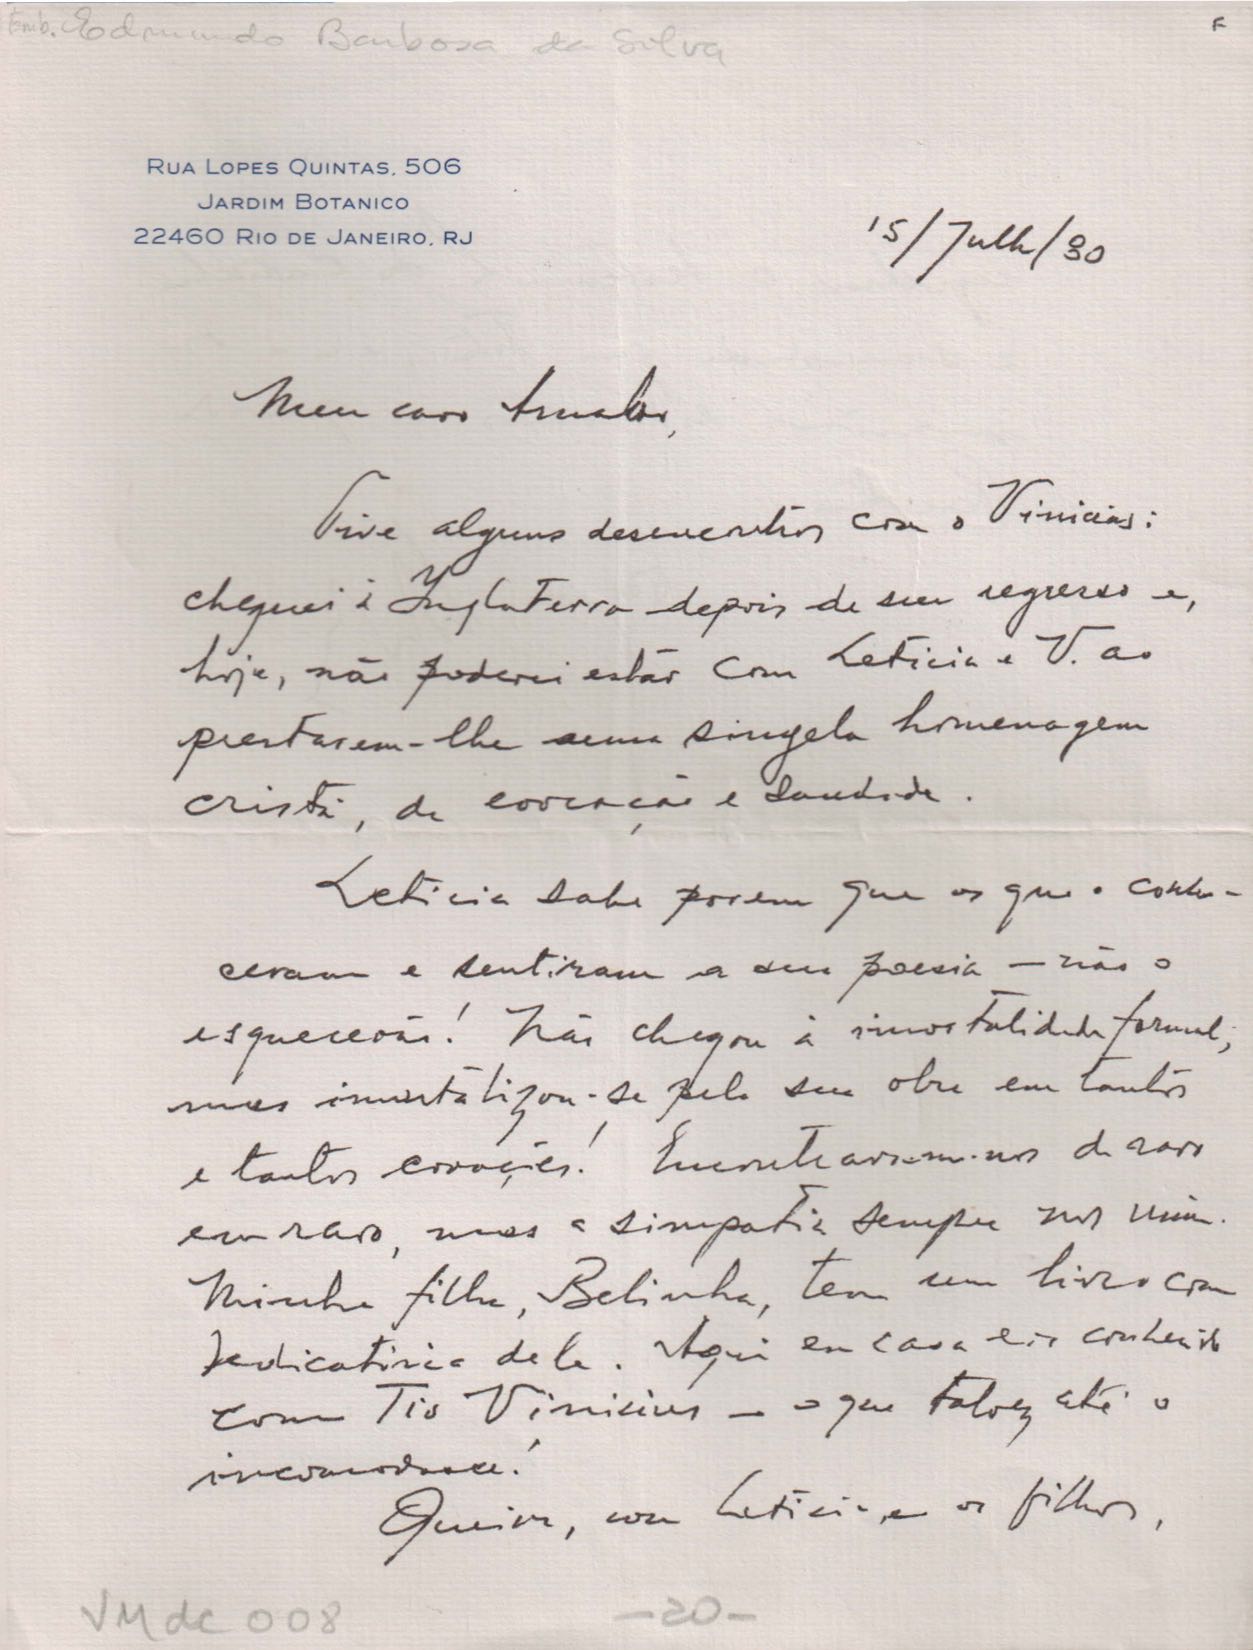 Emb. Edmundo Barbosa da Silva
F
RUA LOPES QUINTAS, 506
JARDIM BOTANICO
22460 RIO DE JANEIRO, RJ
15/Julh/80
Meu caro Arnaldo,
Tive alguns desencontros com o Vinicius:
cheguei à Inglaterra depois de seu regresso e,
hoje, não poderei estar com Leticia e V. ao
prestarem-lhe uma singela homenagem
cristã, de evocação e saudade.
Leticia sabe porem que os que o conhe-
ceram e sentiram a sua poesia — não o
esquecerão! Não chegou à imortalidade formal,
mas imortalizou-se pela sua obra em tantos
e tantos corações! Encontravam-nos de raro
em raro, mas a simpatia sempre nos uniu.
Minha filha, Belinha, tem um livro com
dedicatória dele. Aqui em casa era conhecido
como Tio Vinicius — o que talvez até o
incomodasse!
Queira, com Leticia, e os filhos,
VMdc 008
-20-